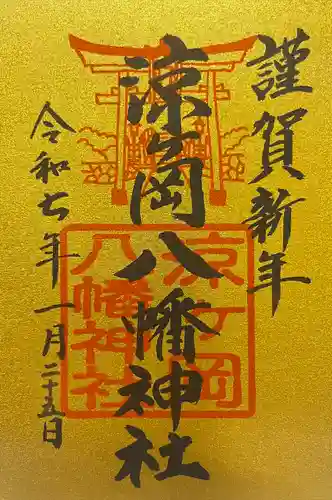 謹賀新年
涼ヶ岡八幡神社
涼ヶ岡
八幡神社
令和七年一月二十五日